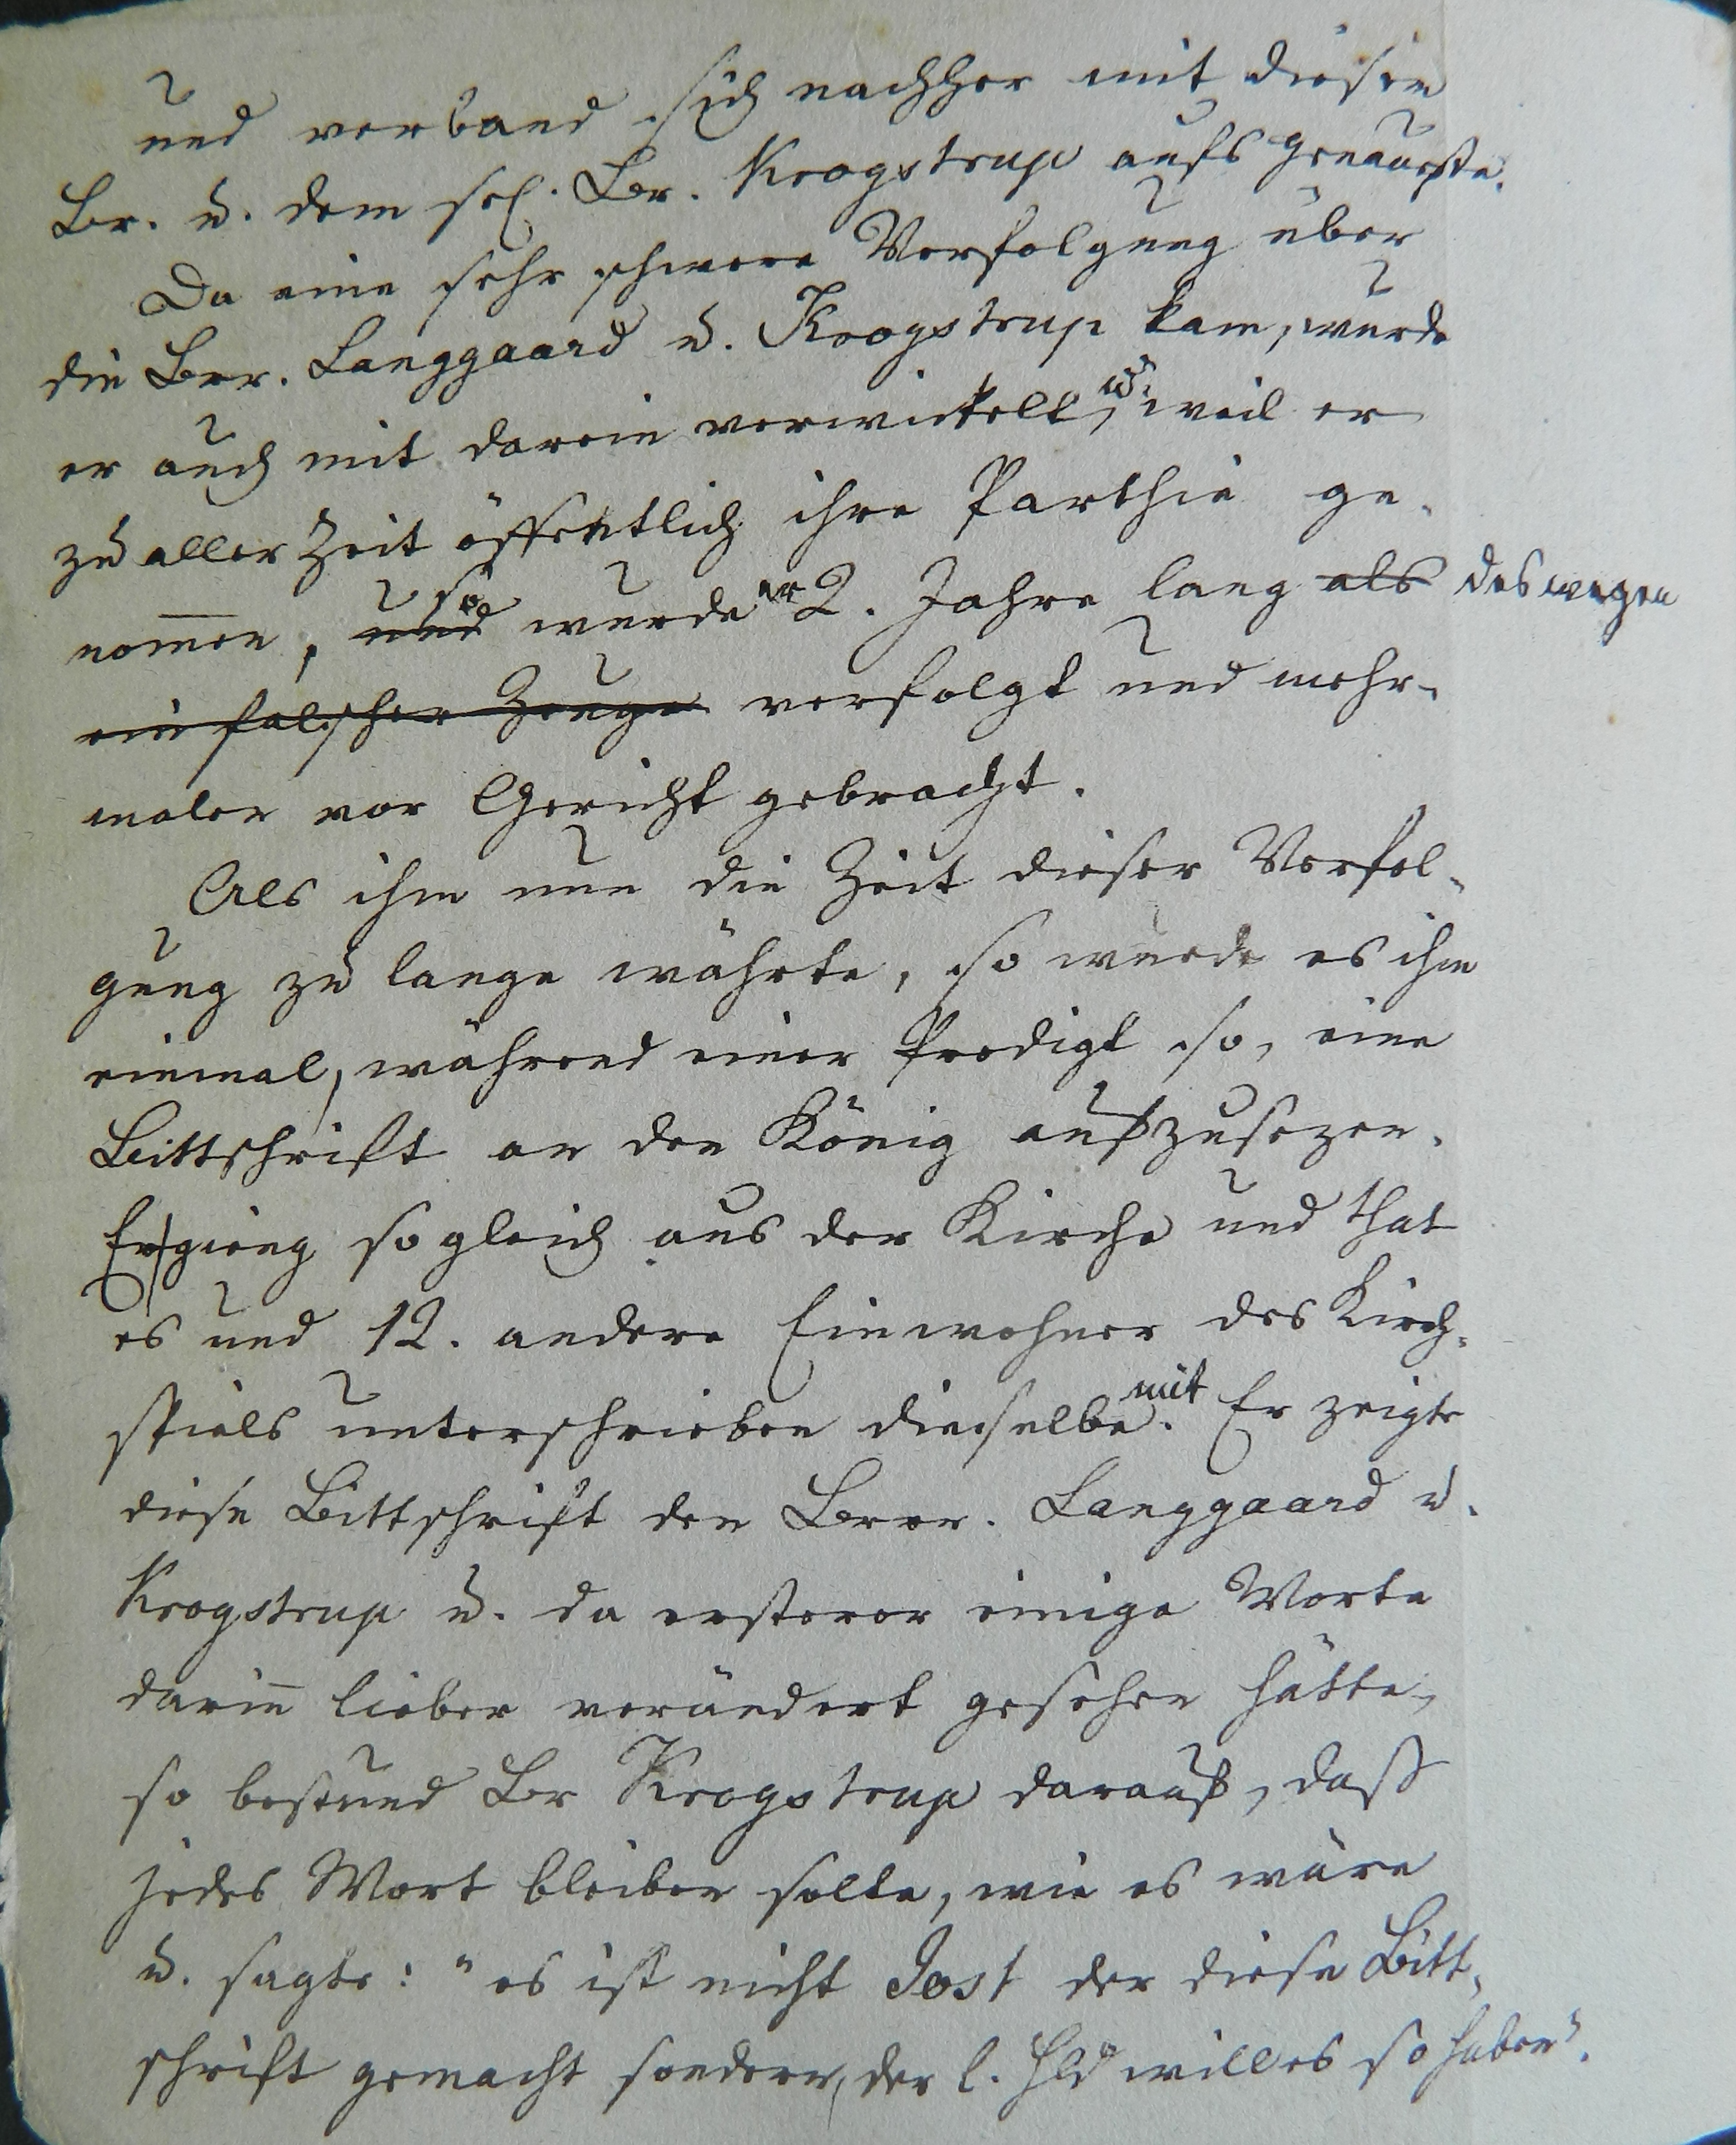 und verband sich nachher mit diesen
Br. u. dem sel. Br. Krogstrup aufs genaueste.
Da eine sehr schwere Verfolgung über
die Brr. Langgaard u. Krogstrup kam, wurde
er auch mit darein verwickelt, u. weil er
zu aller Zeit öffentlich ihre Parthie ge-
nom̄en, und so wurde er 2. Jahre lang als deswegen
ein falscher Zeuge verfolgt und mehr-
malen vor Gericht gebracht.
Als ihm nun die Zeit dieser Verfol-
gung zu lange währte, so wurde es ihm
einmal, während einer Predigt so, eine
Bittschrift an den König aufzusezen.
Er gieng sogleich aus der Kirche und that
es und 12. andere Einwohner des Kirch-
spiels unterschrieben dieselbe mit. Er zeigte
diese Bittschrift den Brrn. Langgaard u.
Krogstrup u. da ersterer einige Worte
darin̄ lieber verändert gesehen hätte,
so bestund Br Krogstrup darauf, daß
jedes Wort bleiben solte, wie es wäre
u. sagte: "es ist nicht Jost der diese Bitt-
schrift gemacht sondern, der l. Hld will es so haben".